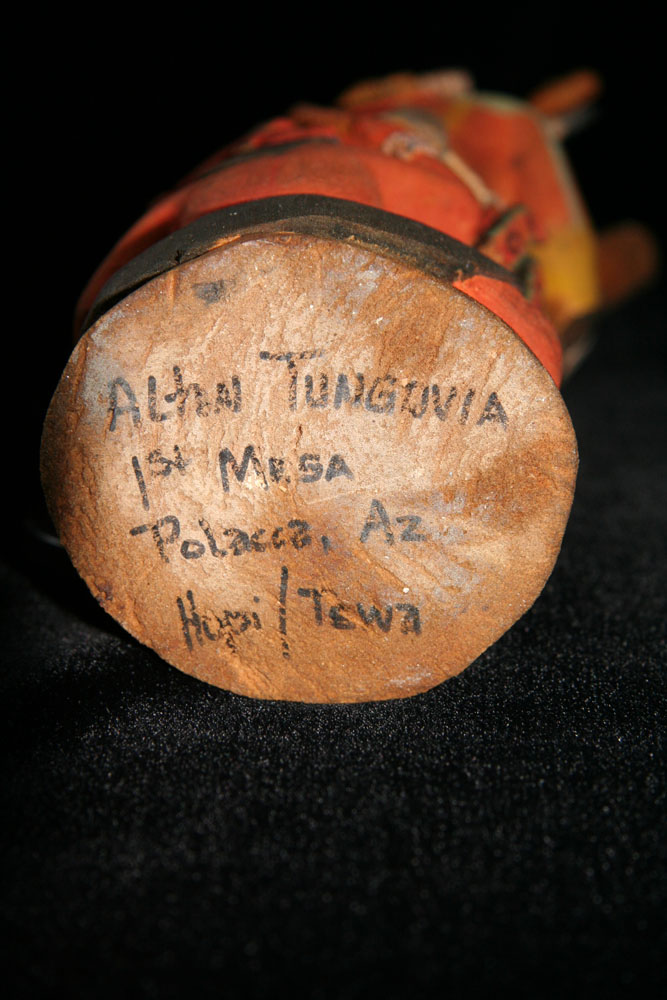 Alton Tungovia
1st Mesa
Polacca, Az.
Hopi/Tewa